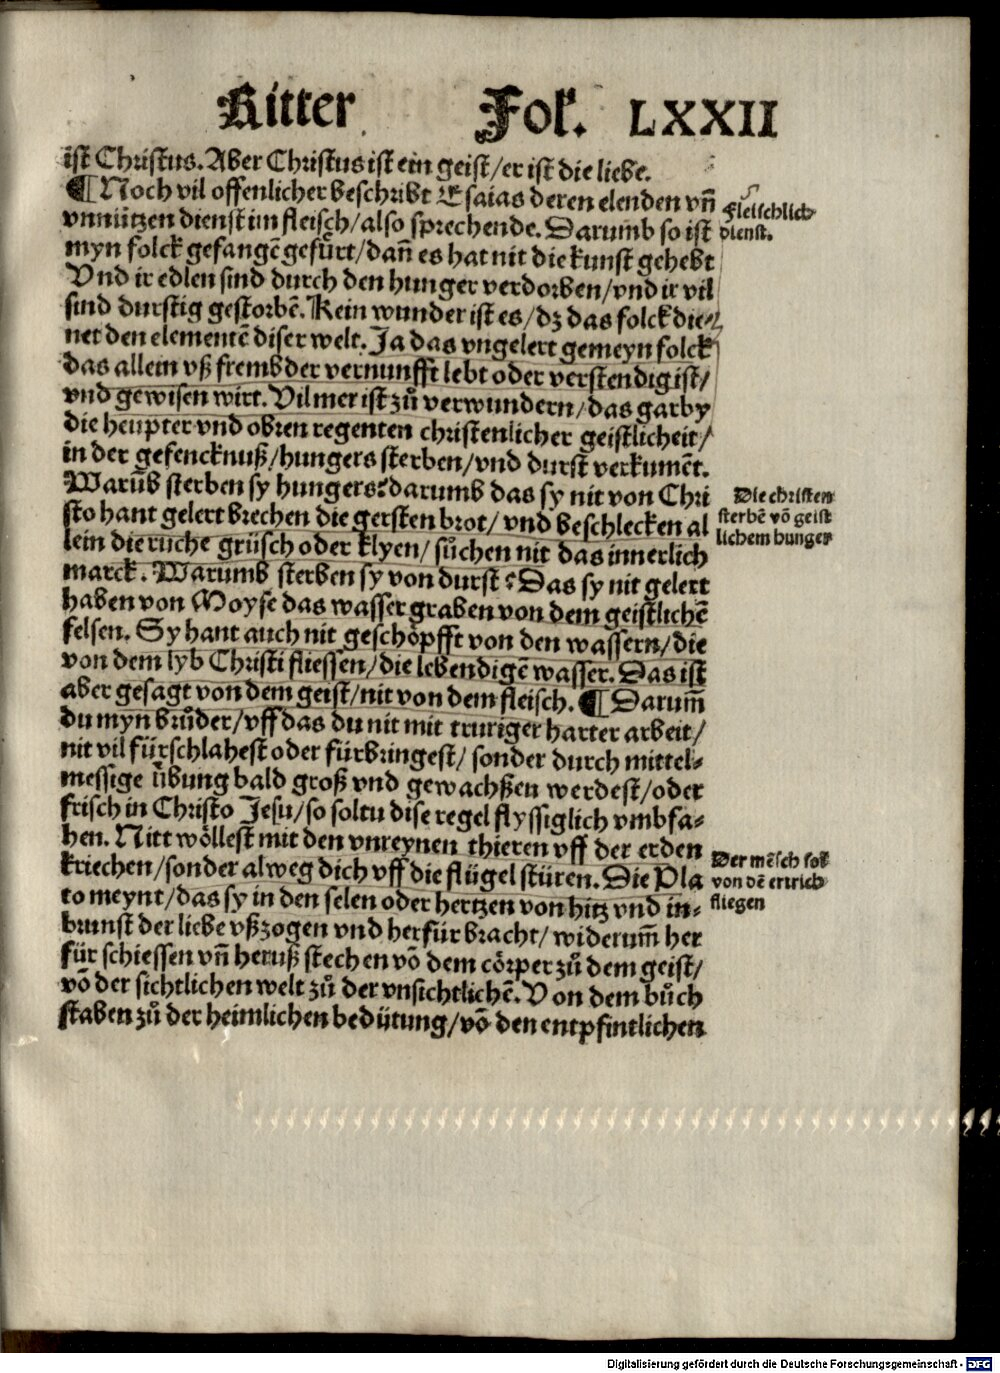 Ritter Fol. LXXII
ist Christus. Aber Christus ist ein geist/er ist die liebe.
¶ Noch vil offenlicher beschribt Esaias deren elenden vñ
vnnützen dienst im fleisch/also sprechende. Darumb so ist
myn folck gefangē gefürt/dañ es hat nit die kunst gehebt
Vnd ir edlen sind durch den hunger verdorben/vnd ir vil
sind durstig gestorbē. Kein wunder ist es/dz das folck die-
net den elementē diser welt. Ja das vngelert gemeyn folck
das allein vß frembder vernunfft lebt oder verstendig ist/
vnd gewisen wirt. Vil mer ist zů verwundern/das garby
die heupter vnd obren regenten christenlicher geistlicheit/
in der gefencknuß/hungers sterben/vnd durst verkumēt.
Warūb sterben sy hungers? darumb das sy nit von Chri
sto hant gelert brechen die gersten brot/vnd beschlecken al
lein die ruche grüsch oder klyen/sůchen nit das innerlich
marck. Warumb sterben sy von durst? Das sy nit gelert
haben von Moyse das wasser graben von dem geistlichē
felsen. Sy hant auch nit geschöpfft von den wassern/die
von dem lyb Christi fliessen/die lebendigē wasser. Das ist
aber gesagt von dem geist/nit von dem fleisch. ¶ Darum̄
du myn brůder/vff das du nit mit truriger harter arbeit/
nit vil fürschlahest oder fürbringest/sonder durch mittel-
messige übung bald groß vnd gewachßen werdest/oder
frisch in Christo Jesu/so soltu dise regel flyssiglich vmbfa-
hen. Nitt wöllest mit den vnreynen thieren vff der erden
kriechen/sonder alweg dich vff die flügel stüren. Die Pla
to meynt/das sy in den selen oder hertzen von hitz vnd in-
brunst der liebe vßzogen vnd herfür bracht/widerum̄ her
für schiessen vñ heruß stechen vō dem cörper zů dem geist/
vō der sichtlichen welt zů der vnsichtlichē. Von dem bůch
staben zů der heimlichen bedütung/vō den entpfintlichen
Fleischlich
dienst.
Die christen
sterbē vō geist
lichem hunger
Der mēsch sol
von dē ertrich
fliegen
Digitalisierung gefördert durch die Deutsche Forschungsgemeinschaft - DFG